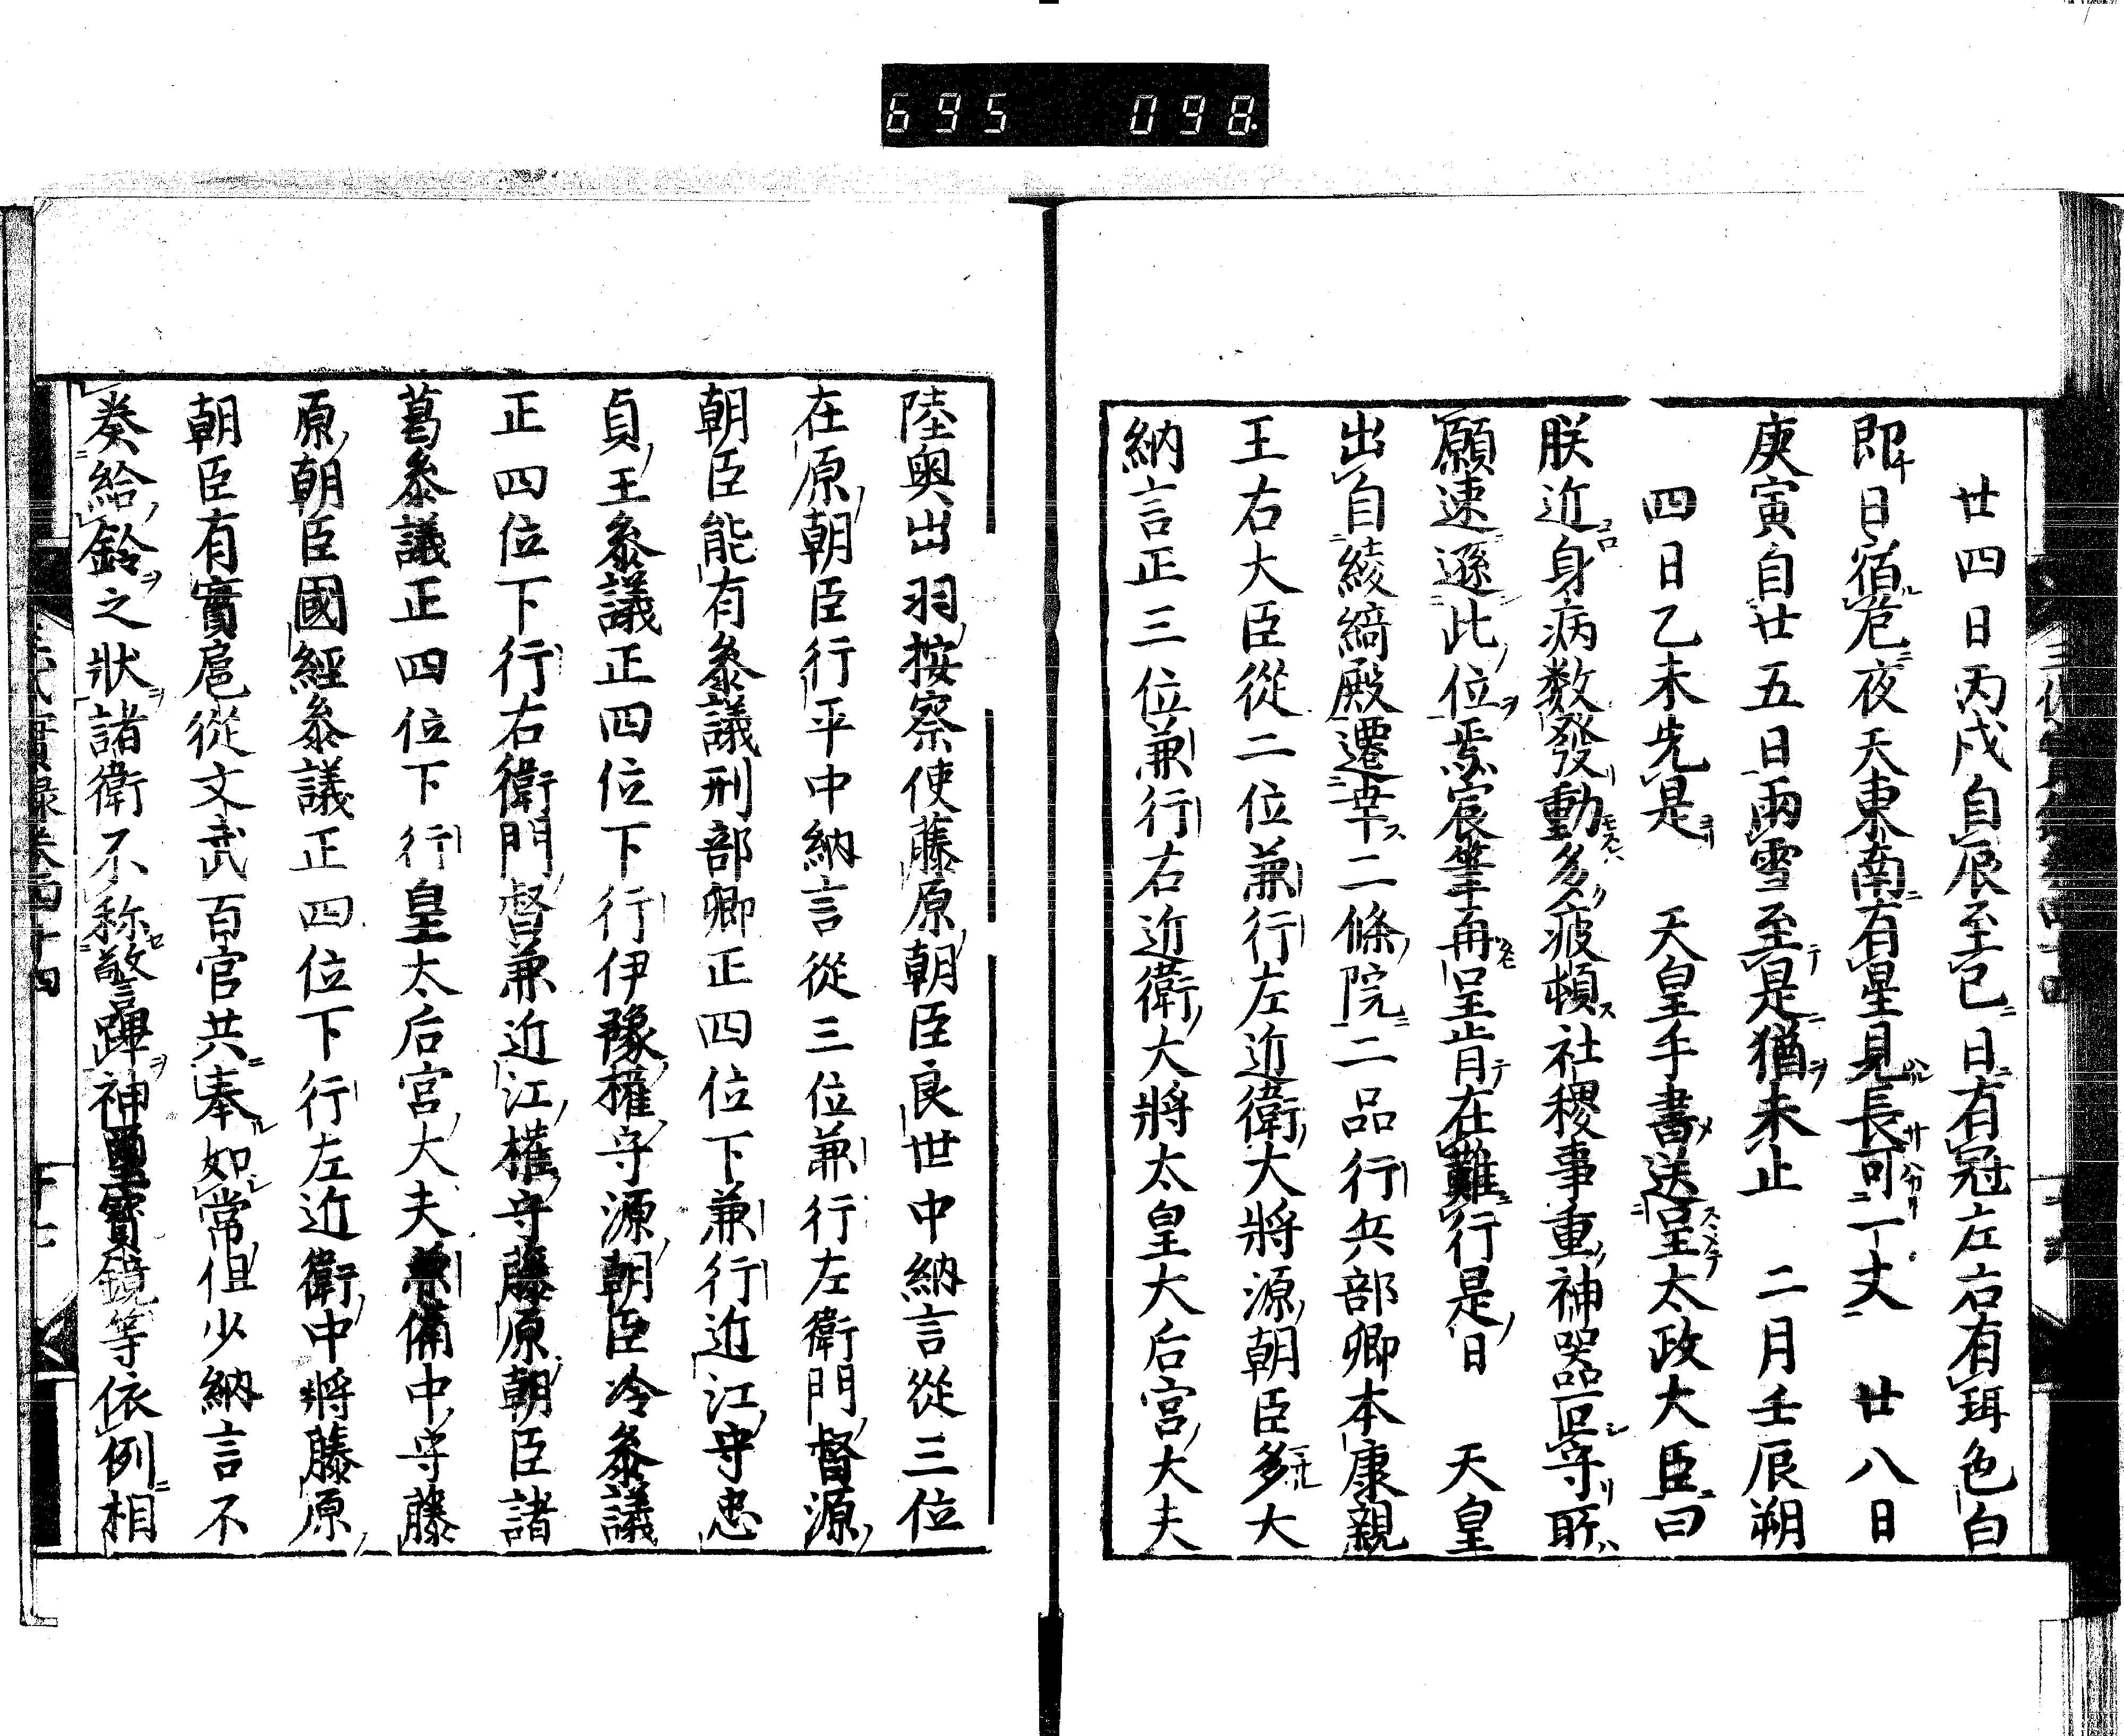 695 098
廿四日丙戌自辰至巳日有冠左右有珥色白
即日宿危夜天東南有星見長可一丈 廿八日
庚寅自廿五日雨雪至是猶未止 二月壬辰朔
四日乙未先是 天皇手書送呈太政大臣曰
朕近身病数發動多疲頓社稷事重神器叵守所
願速遜此位焉宸筆再呈旨在難行是日 天皇
出自綾綺殿遷幸二條院二品行兵部卿本康親
王右大臣從二位兼行左近衛大將源朝臣多大
納言正三位兼行右近衛大將太皇大后宮大夫
陸奥出羽按察使藤原朝臣良世中納言從三位
在原朝臣行平中納言從三位兼行左衛門督源
朝臣能有參議刑部卿正四位下兼行近江守忠
貞王參議正四位下行伊豫權守源朝臣冷參議
正四位下行右衛門督兼近江權守藤原朝臣諸
葛參議正四位下行皇太后宮大夫兼備中守藤
原朝臣國經參議正四位下行左近衛中將藤原
朝臣有實扈從文武百官共奉如常但少納言不
奏給鈴之狀諸衛不称警蹕神璽寶鏡等依例相
三代實録卷四十四